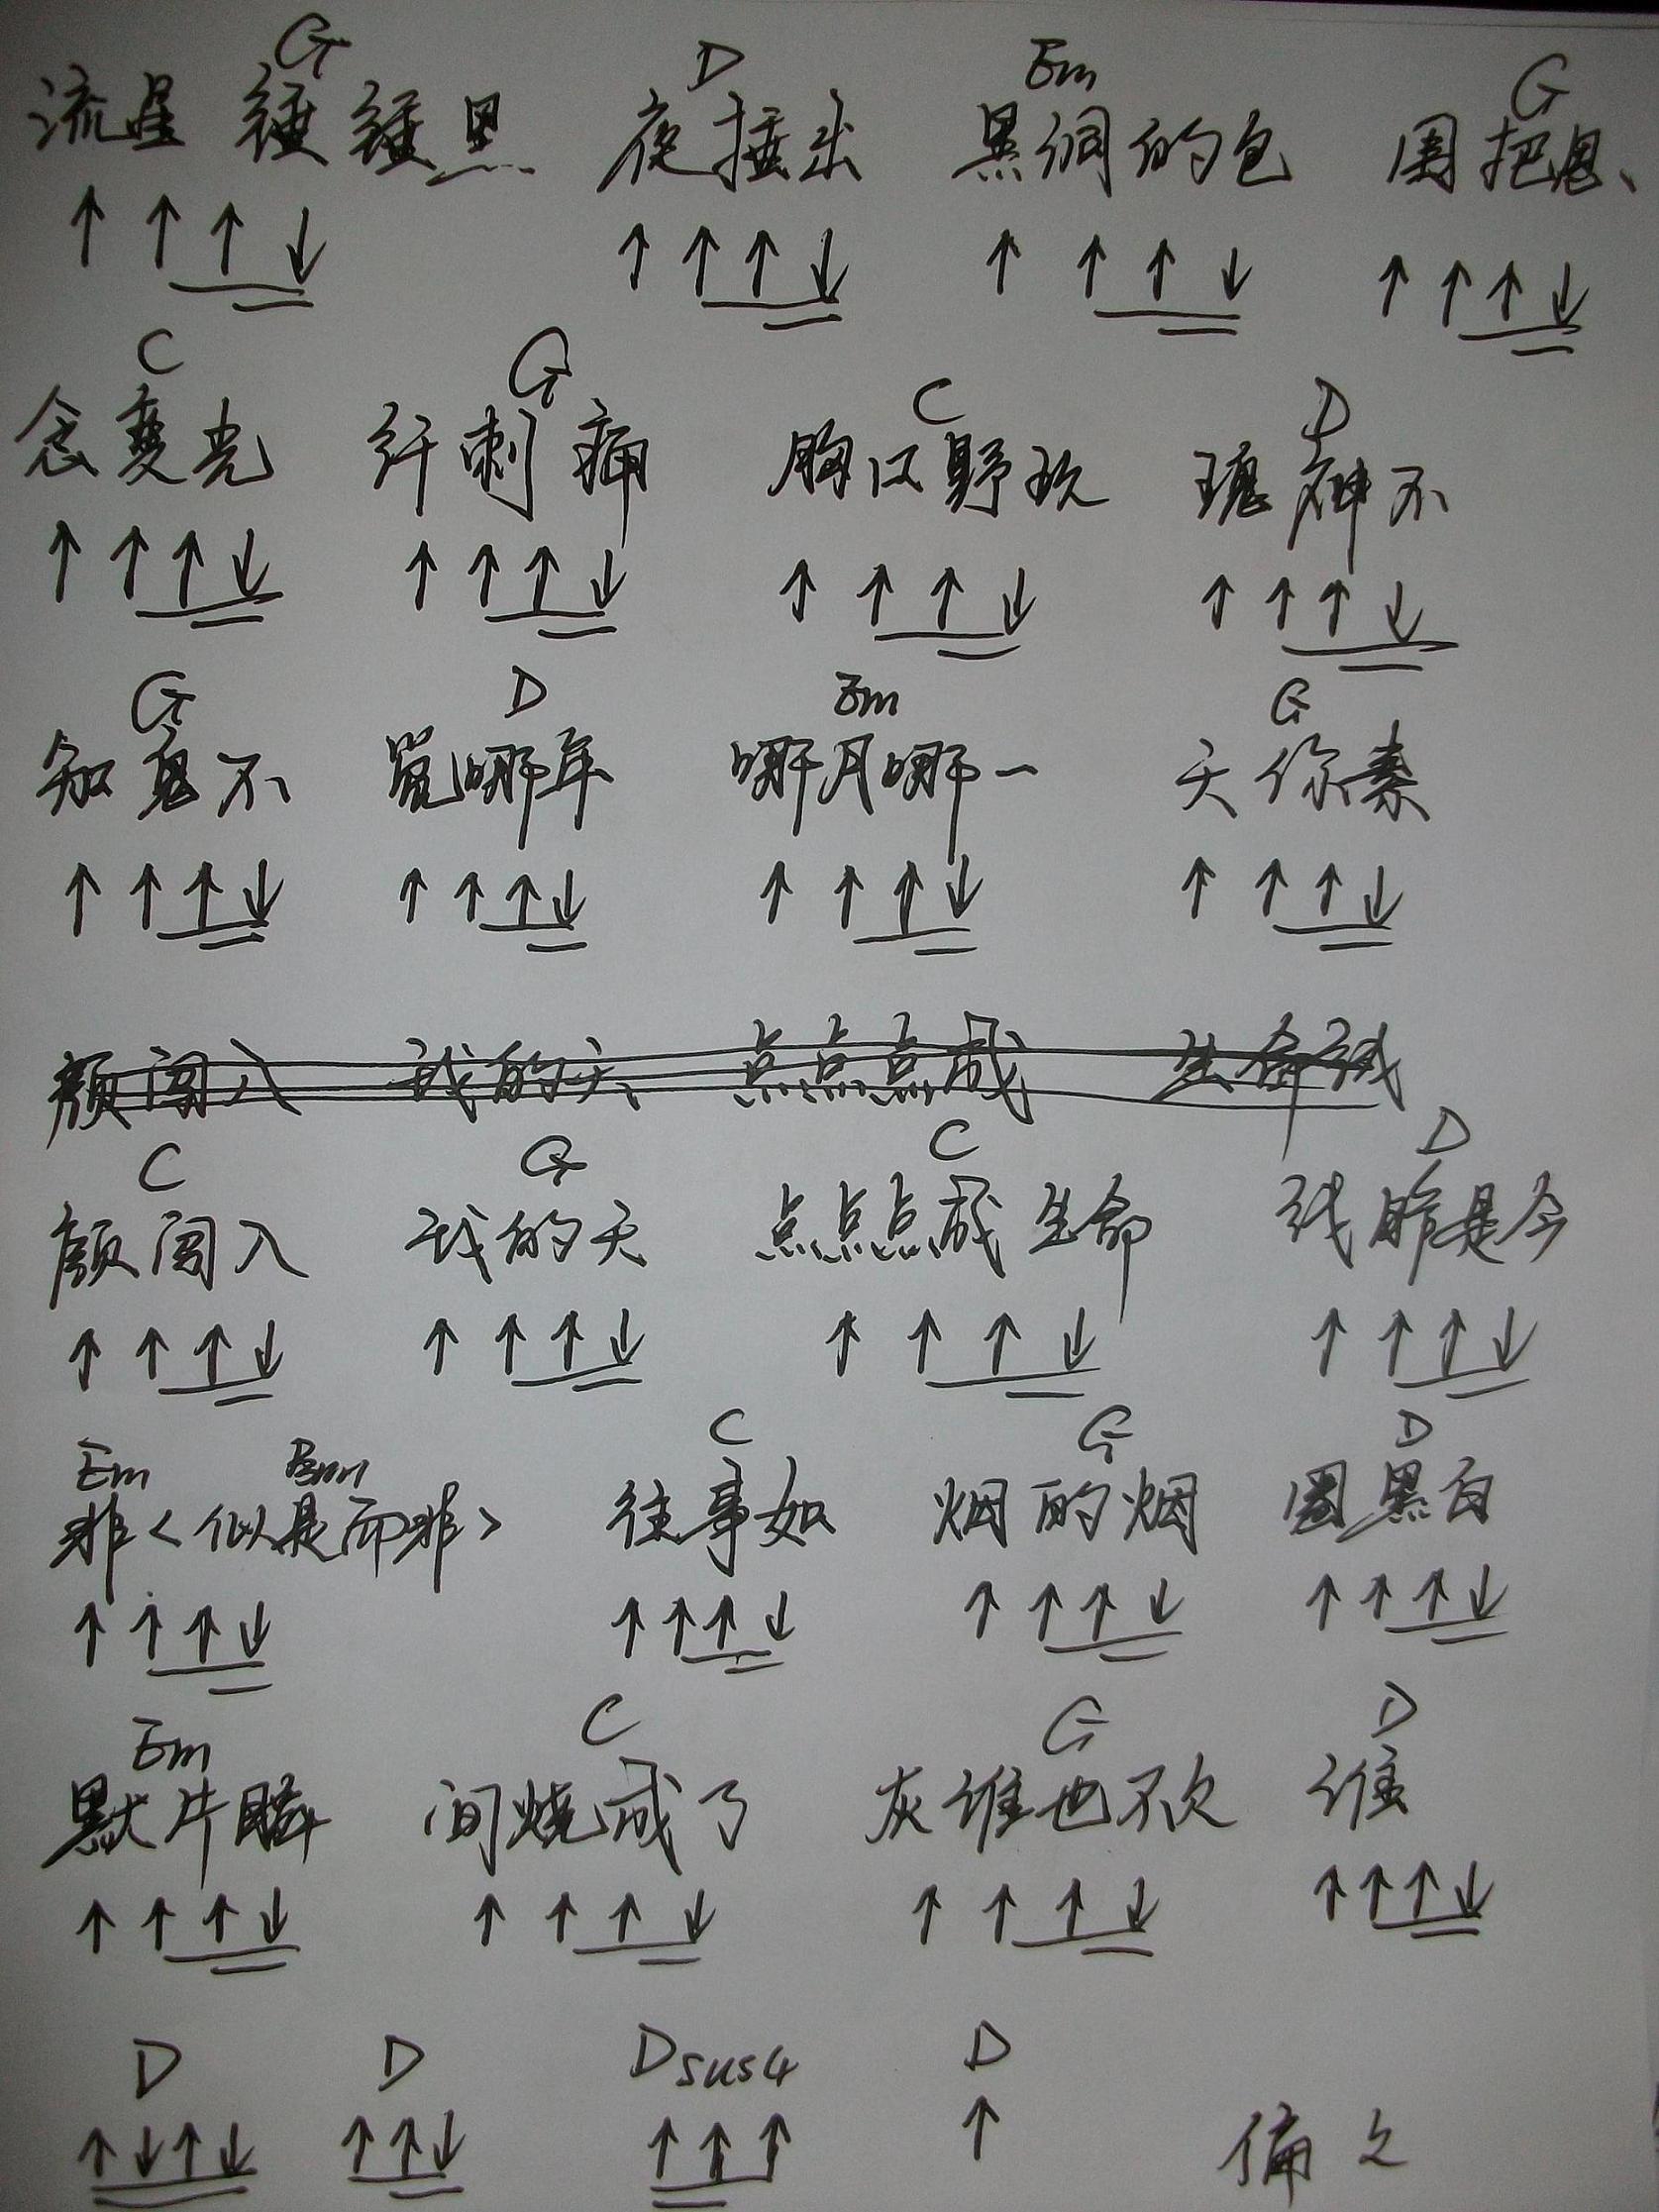 G D Em G
流星 锤锤黑 夜捶出 黑洞的包 围把思、
↑ ↑ ↑ ↓ ↑ ↑ ↑ ↓ ↑ ↑ ↑ ↓ ↑ ↑ ↑ ↓
C G C D
念变光 纤刺痛 胸口野玫 瑰神不
↑ ↑ ↑ ↓ ↑ ↑ ↑ ↓ ↑ ↑ ↑ ↓ ↑ ↑ ↑ ↓
G D Em G
知鬼不 觉哪年 哪月哪一 天你素
↑ ↑ ↑ ↓ ↑ ↑ ↑ ↓ ↑ ↑ ↑ ↓ ↑ ↑ ↑ ↓
颜闯入 我的天 点点点成 生命线
C G C D
颜闯入 我的天 点点点成生命 线昨是今
↑ ↑ ↑ ↓ ↑ ↑ ↑ ↓ ↑ ↑ ↑ ↓ ↑ ↑ ↑ ↓
Em Bm C G D
非<似是而非> 往事如 烟的烟 圈黑白
↑ ↑ ↑ ↓ ↑ ↑ ↑ ↓ ↑ ↑ ↑ ↓ ↑ ↑ ↑ ↓
Em C G D
默片瞬 间烧成了 灰谁也不欠 谁
↑ ↑ ↑ ↓ ↑ ↑ ↑ ↓ ↑ ↑ ↑ ↓ ↑ ↑ ↑ ↓
D D Dsus4 D
↑ ↓ ↑ ↓ ↑ ↑ ↓ ↑ ↑ ↑ ↑ 偏